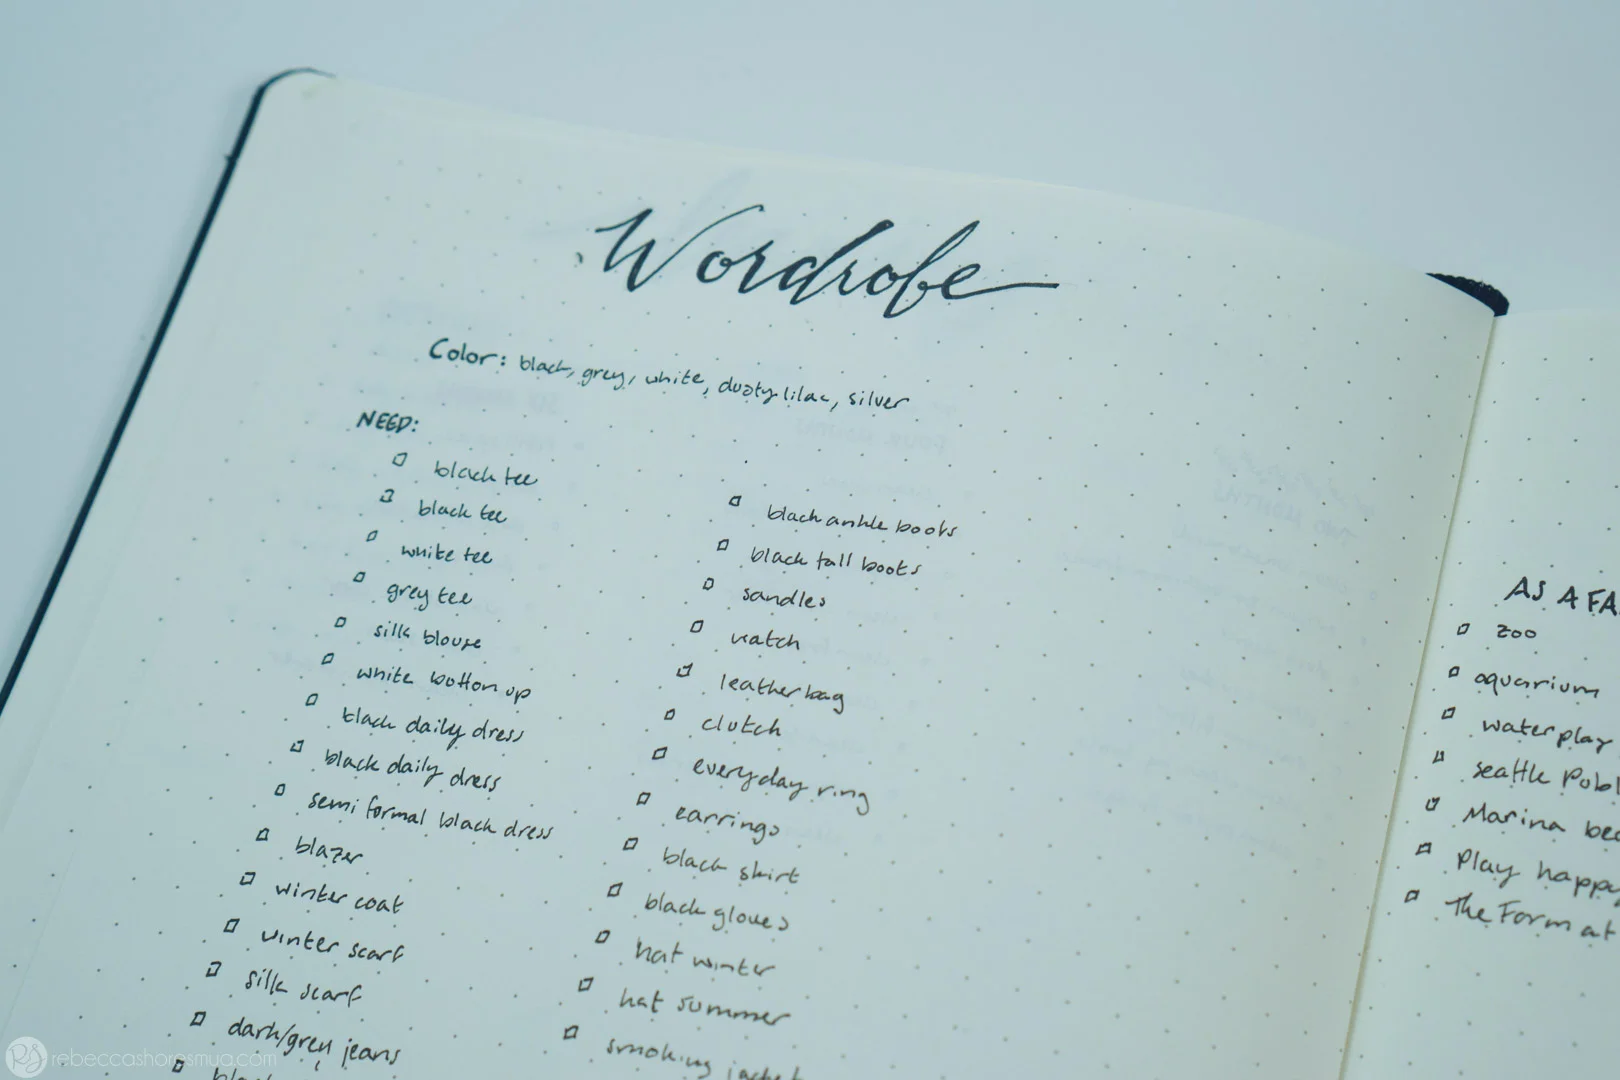 Wordrobe
Color: black, grey, white, dusty lilac, silver
NEED:
black tee
black tee
white tee
grey tee
silk blouse
white button up
black daily dress
black daily dress
semi formal black dress
blazer
winter coat
winter scarf
silk scarf
dark/grey jeans
black ankle boots
black tall boots
sandles
watch
leather bag
clutch
everyday ring
earrings
black skirt
black gloves
hat winter
hat summer
smoking jacket
AS A FA
zoo
aquarium
water play
seattle Publ
Marina bea
Play happy
The Farm at
RS rebeccashoresmua.com